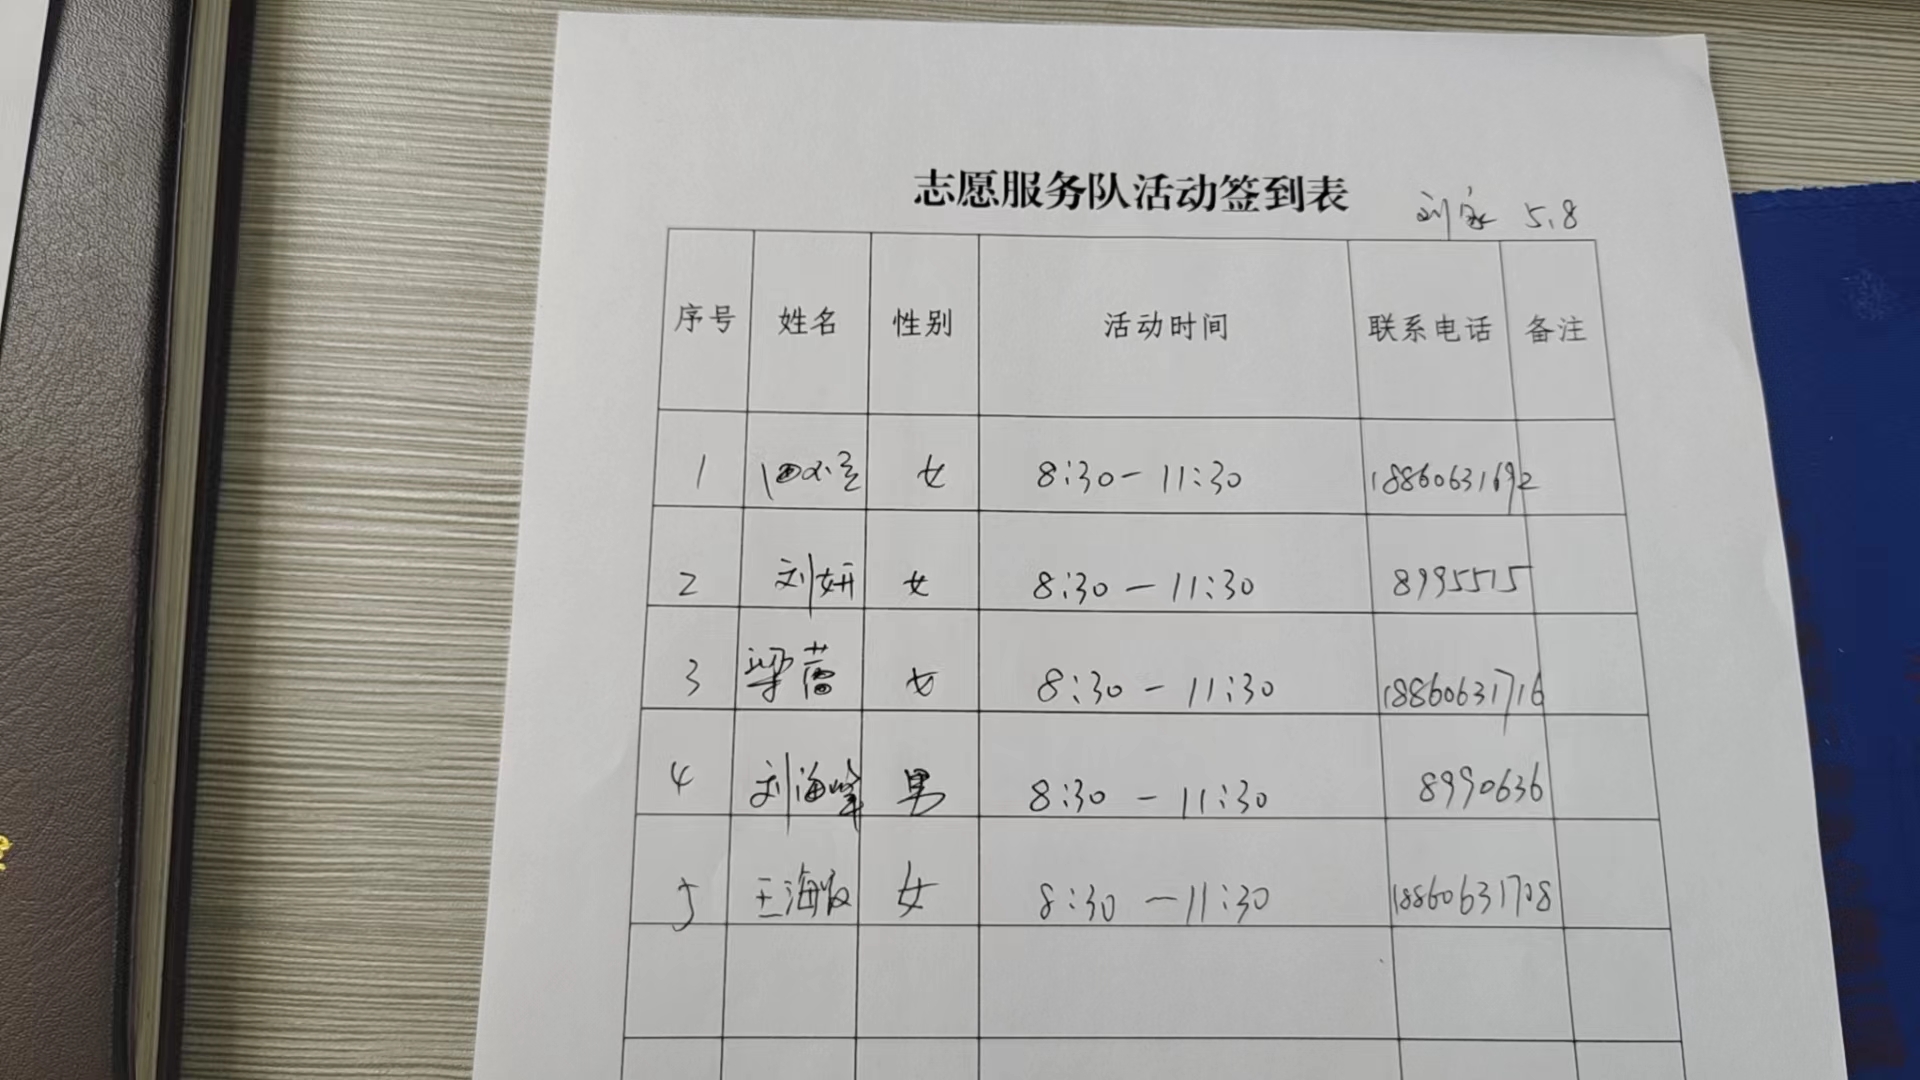 志愿服务队活动签到表 刘家 5.8
序号 姓名 性别 活动时间 联系电话 备注
1 女 8:30-11:30 18860631692
2 刘妍 女 8:30-11:30 8995515
3 梁蕾 女 8:30-11:30 18860631716
4 刘海峰 男 8:30-11:30 8990636
5 王海波 女 8:30-11:30 18860631708